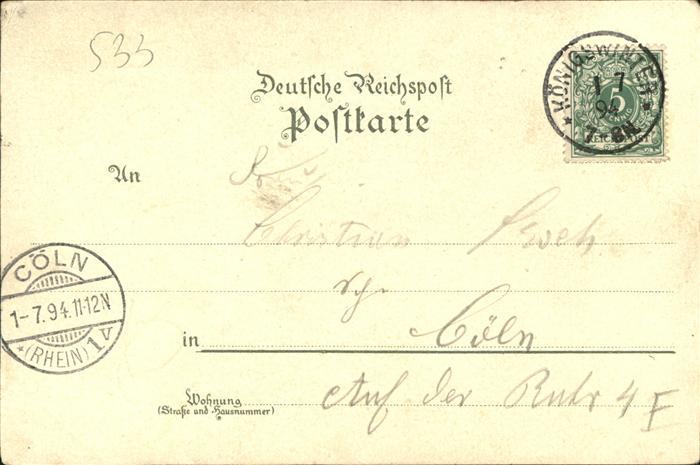 533
Deutsche Reichspost
Postkarte
KÖNIGSWINTER
1 7
94
7-8N
5
An
Christian
CÖLN
1-7.94.11-12N
(RHEIN) 1V
in Cöln
Wohnung
(Straße und Hausnummer)
Auf der Ruhr 4 I